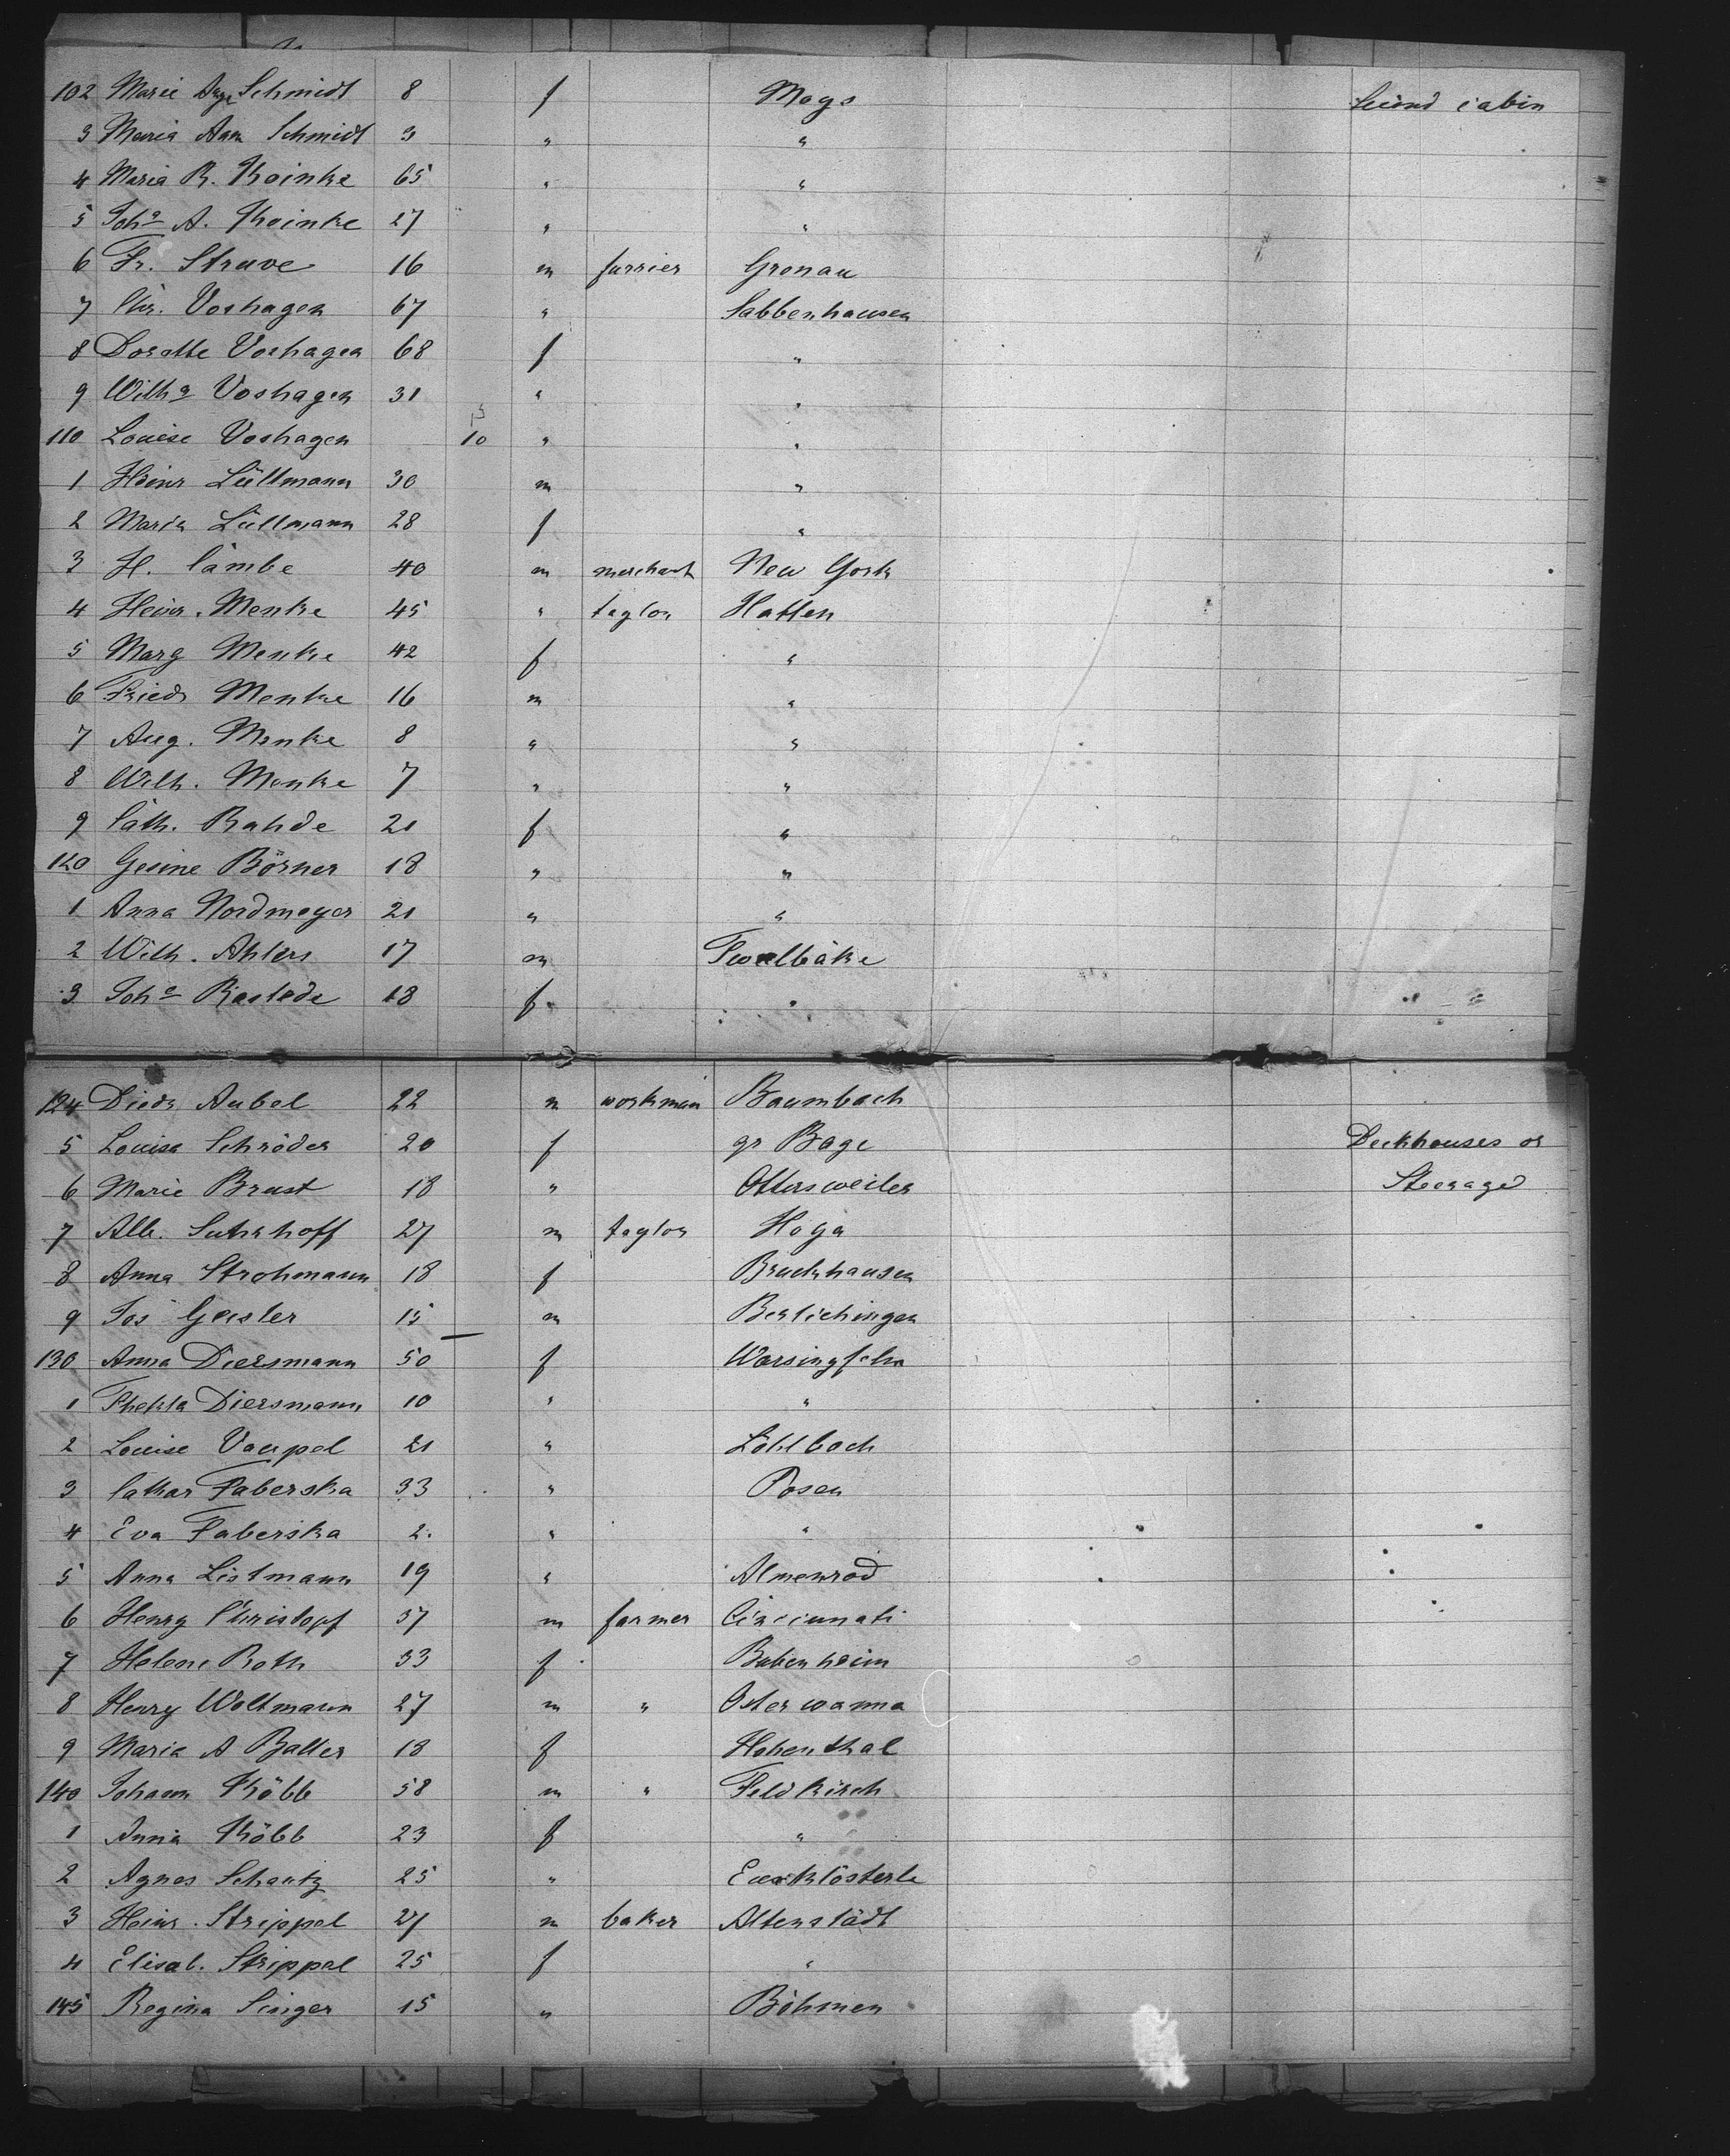 102 Marie Aug Schmidt 8 f Mags Second cabin
3 Maria Ann Schmidt 3 " "
4 Maria R. Koinke 65 " "
5 Joha A. Koinke 27 " "
6 Fr. Struve 16 m furrier Gronau
7 Chr. Voshagen 67 " Sabbenhausen
8 Dorette Voshagen 68 f "
9 Wilha Voshagen 31 " "
110 Louise Voshagen 10 " "
1 Heinr Lüllmann 30 m "
2 Maria Lüllmann 28 f "
3 H. Cämbe 40 m merchant New York
4 Heinr. Menke 45 " taylor Hatten
5 Marg Menke 42 f "
6 Friedr Menke 16 m "
7 Aug. Menke 8 " "
8 Wilh. Menke 7 " "
9 Cath. Rahde 21 f "
120 Gesine Börner 18 " "
1 Anna Nordmeyer 21 " "
2 Wilh. Ahlers 17 m Twelbäke
3 Johe Rastede 18 f "
124 Diedr Aubel 22 m workman Baumbach
5 Louisa Schröder 20 f gr Bage Deckhouses or
6 Marie Brust 18 " Ottersweiler Steerage
7 Alb. Suhrhoff 27 m taylor Hoya
8 Anna Strohmann 18 f Bruckhausen
9 Jos Geisler 15 m Berlichingen
130 Anna Diersmann 50 f Warsingfehn
1 Thekla Diersmann 10 " "
2 Louise Vaupel 21 " Löhlbach
3 Cathar Faberska 33 " Posen
4 Eva Faberska 2 " "
5 Anna Listmann 19 " Almenrod
6 Henry Christopf 37 m farmer Cincinnati
7 Helene Roth 33 f Babenheim
8 Henry Woltmann 27 m " Osterwanna
9 Maria A Balter 18 f Hohenthal
140 Johann Köbb 58 m " Feldkirch
1 Anna Köbb 23 f "
2 Agnes Schautz 25 " Enzklösterle
3 Heinr. Strippel 27 m baker Altenstädt
4 Elisab. Strippel 25 f "
145 Regina Singer 15 " Böhmen